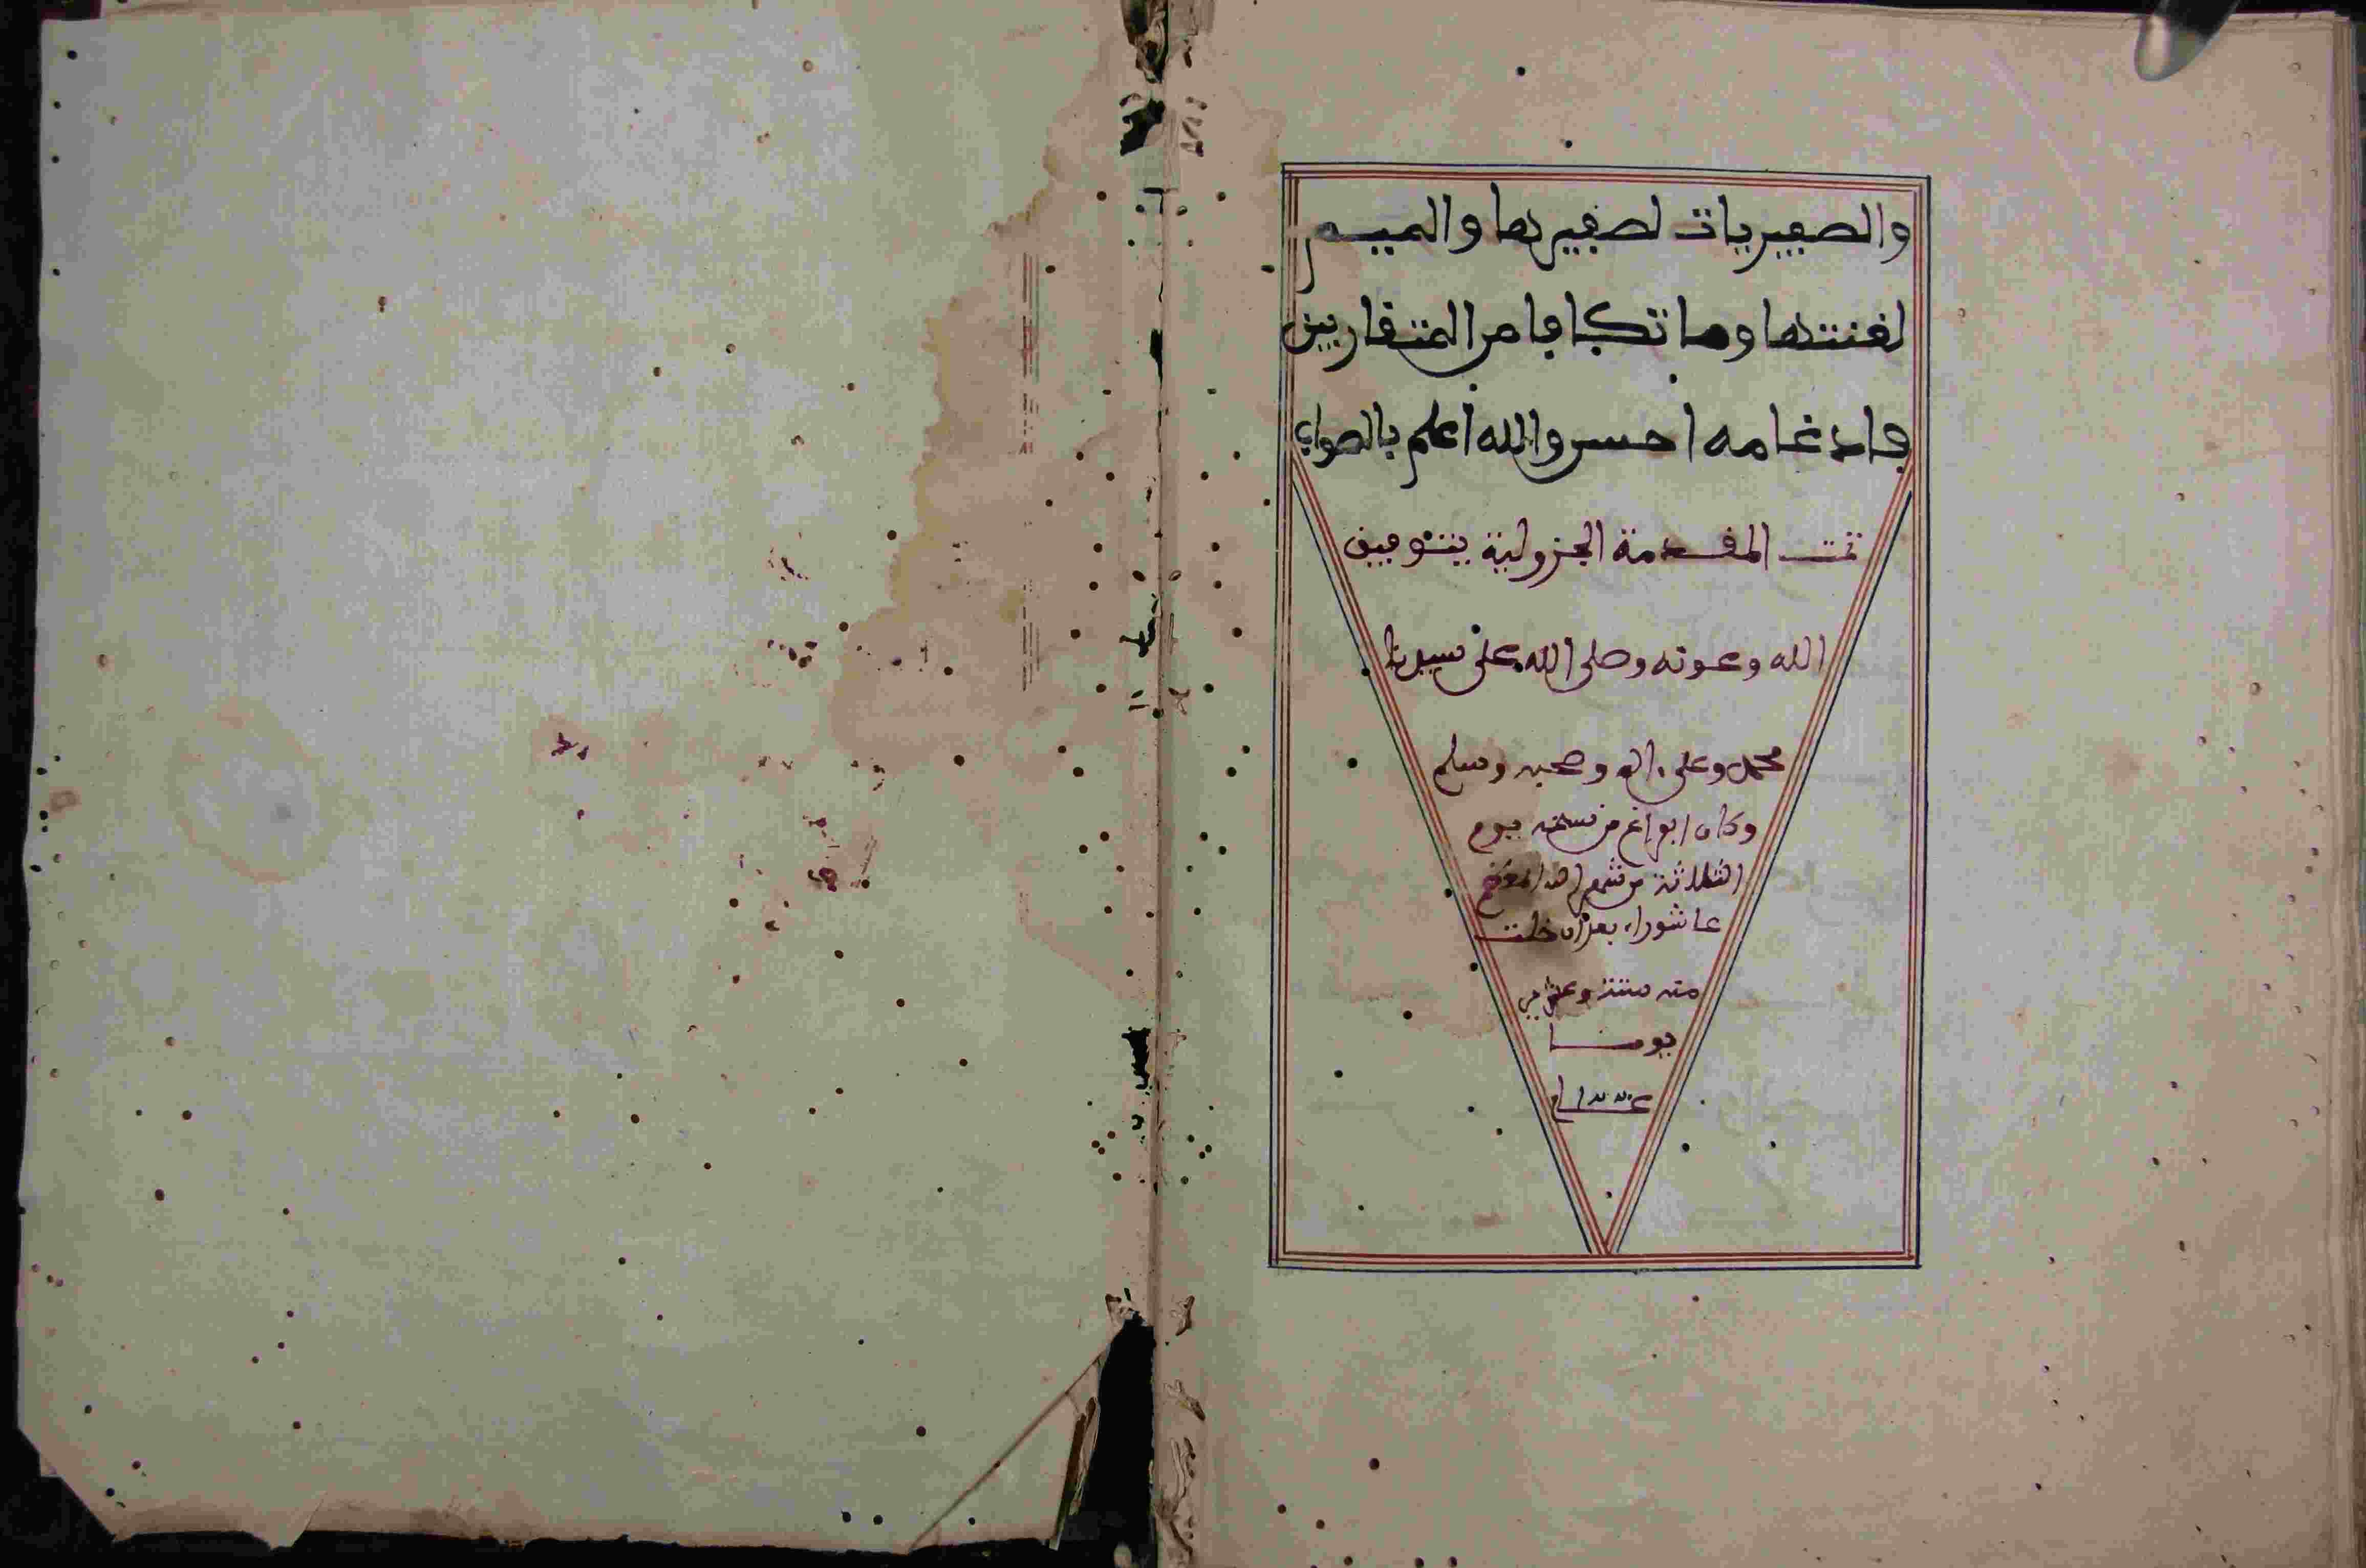 والصفيريات لصفيرها والميم
لغنتها وما تكافا من المتقاربين
فادغامه احسن والله اعلم بالصواب
تمت المقدمة الجزولية بتوفيق
الله وعونه وصلى الله على سيدنا
محمد وعلى ءاله وصحبه وسلم
وكان الفراغ من نسخه يوم
الثلاثة من شهر الله المعظم
عاشوراء بعد ان خلت
منه ستة وعشرين
يوما